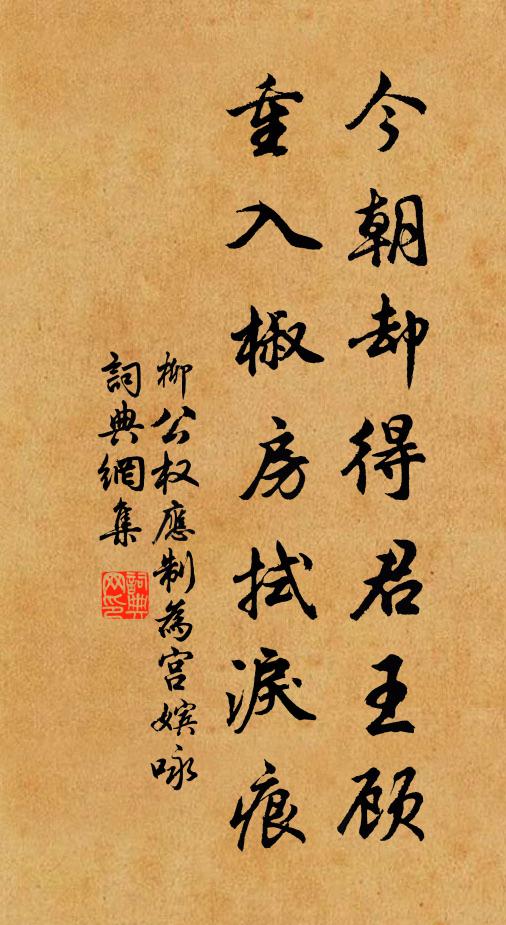 今朝却得君王顾
重入椒房拭淚痕
柳公权應制為宮嬪咏
詞典網集
詞典网印